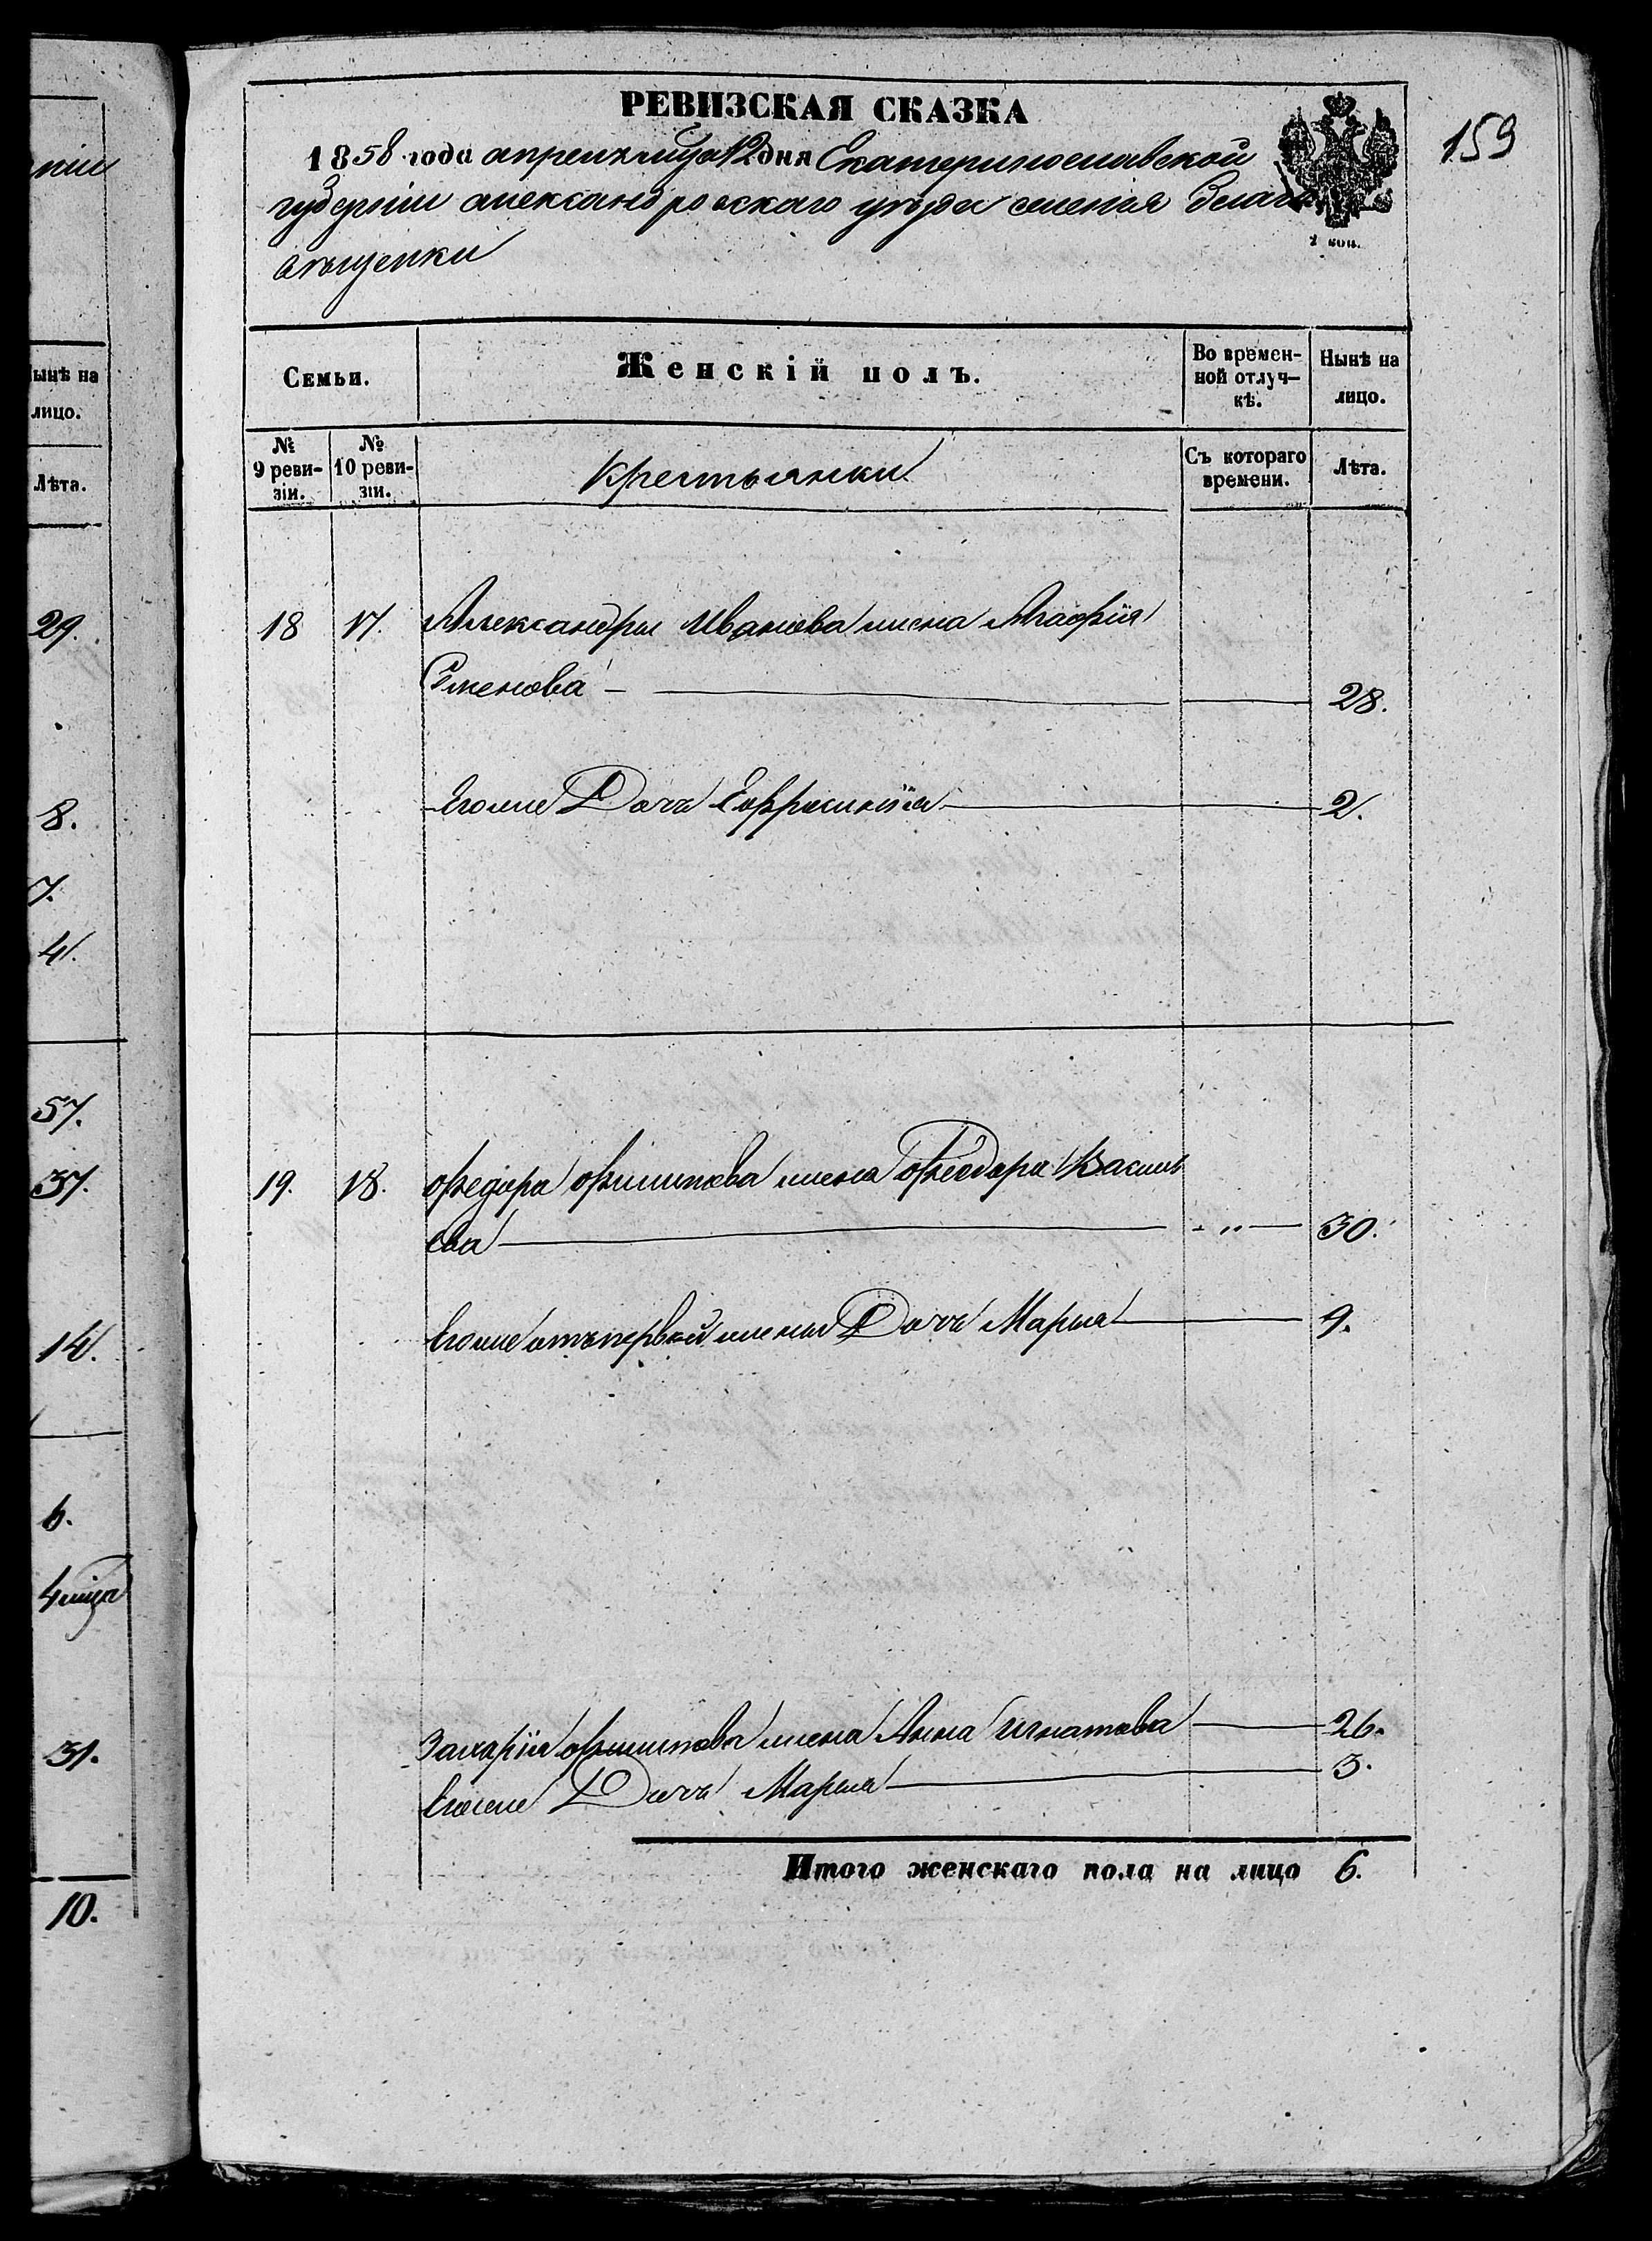 нiи
Нынѣ на
лицо.
Лѣта.
29.
8.
7.
4.
57.
37.
14.
6.
4 мца
31.
10.
159
РЕВИЗСКАЯ СКАЗКА
1858 года апреля мца 12 дня Екатеринославской
губернiи александровскаго уѣзда имения благо
вѣщенки
Семьи.
Женскiй полъ.
Во времен-
ной отлуч-
кѣ.
Нынѣ на
лицо.
№
9 реви-
зiи.
№
10 реви-
зiи.
Крестьянки
Съ котораго
времени.
Лѣта.
18 17. Александры Иванова жена Агафiя
Семенова — 28.
Егоже Дочь Ефросинiя 2.
19. 18. Федора Филипова жена Феодора Василь
ева — " — 30.
Егоже отъ первой жены Дочь Марья 9.
Захарiя Филипова жена Анна Игнатова 26.
Егоже Дочь Марья 3.
Итого женскаго пола на лицо 6.